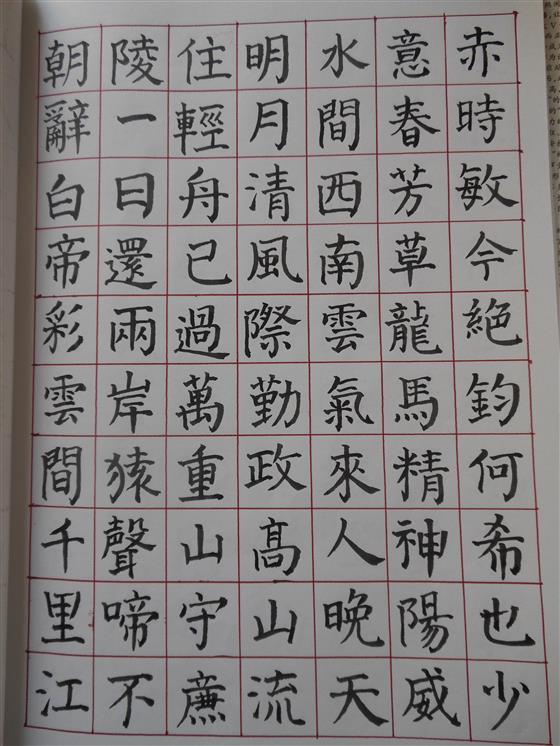 朝辭白帝彩雲間千里江
陵一日還兩岸猿聲啼不
住輕舟已過萬重山守㢘
明月清風際勤政髙山流
水間西南雲氣來人晚天
意春芳草龍馬精神陽威
赤時敏今絕鈞何希也少